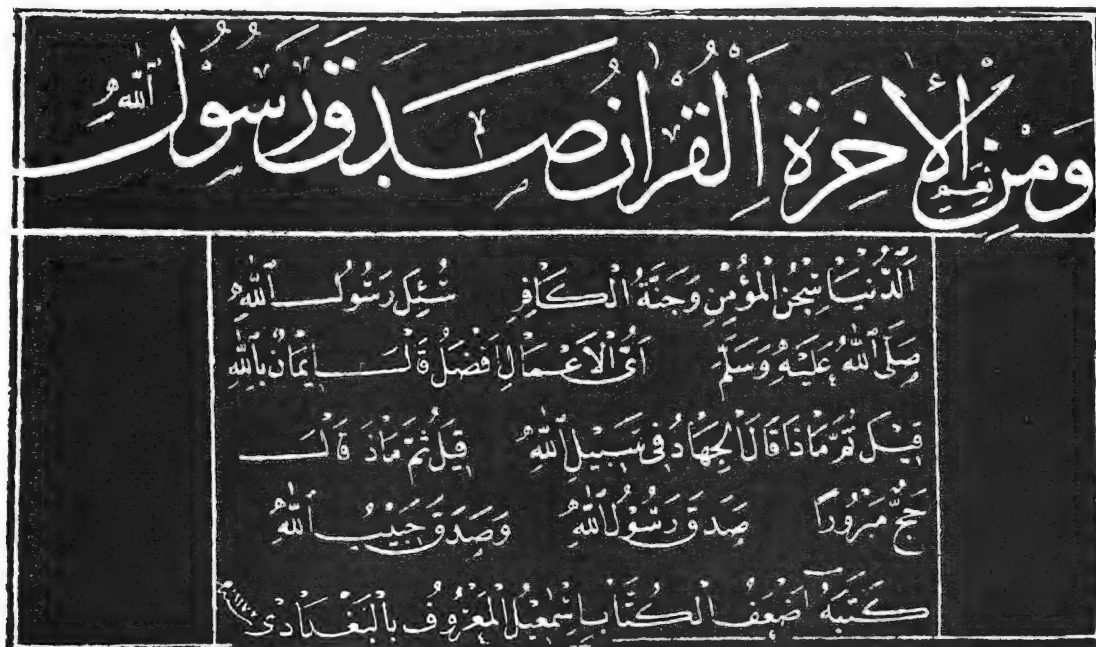 وَمِنْ نَعِيمِ الْأٰخِرَةِ اَلْقُرْاٰنُ صَدَقَ رَسُولُ اللّٰهِ
اَلدُّنْيَا سِجْنُ الْمُؤْمِنِ وَجَنَّةُ الْكَافِرِ سُئِلَ رَسُولُ اللّٰهِ
صَلَّى اللّٰهُ عَلَيْهِ وَسَلَّمَ اَىُّ الْاَعْمَالِ اَفْضَلُ قَالَ اِيْمَانٌ بِاللّٰهِ
قِيْلَ ثُمَّ مَاذَا قَالَ الْجِهَادُ فِى سَبِيْلِ اللّٰهِ قِيْلَ ثُمَّ مَاذَ قَالَ
حَجٌّ مَبْرُورًا صَدَقَ رَسُوْلُ اللّٰهِ وَصَدَقَ حَبِيْبُ اللّٰهِ
كَتَبَهُ اَضْعَفُ الْكُتَّابِ اِسْمٰعِيْلُ الْمَعْرُوْفُ بِالْبَغْدَادِىِّ